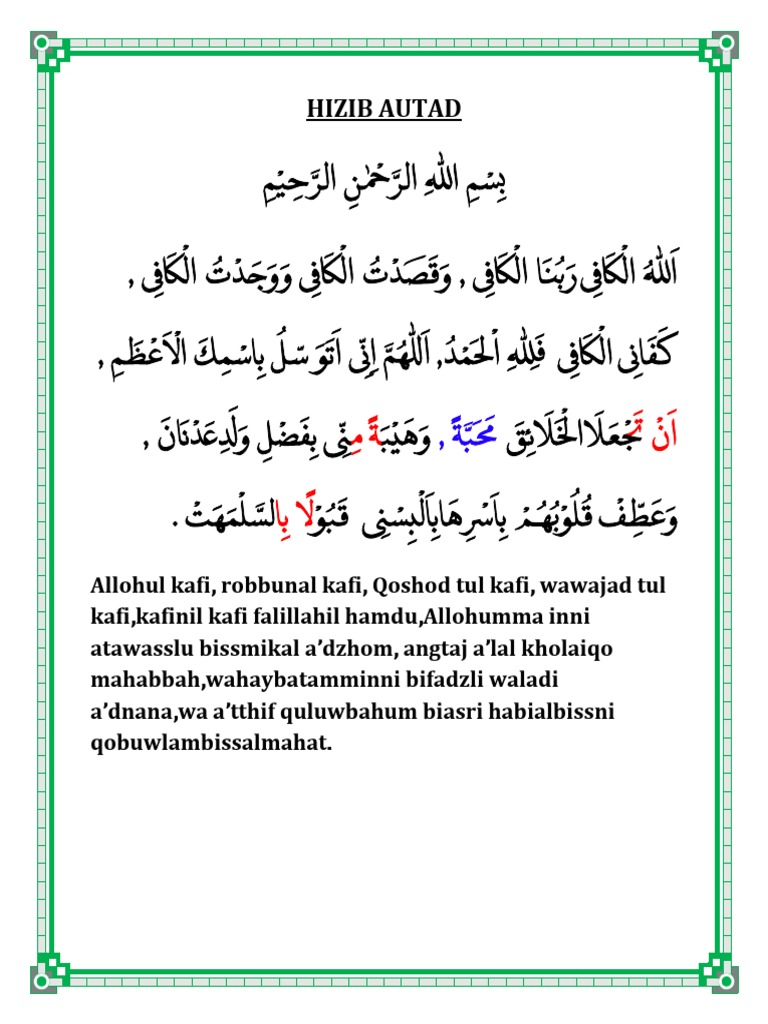 HIZIB AUTAD
بِسْمِ اللهِ الرَّحْمٰنِ الرَّحِيْمِ
اَللهُ الْكَافِى رَبُنَا الْكَافِى , وَقَصَدْتُ الْكَافِى وَوَجَدْتُ الْكَافِى ,
كَفَانِى الْكَافِى فَلِلهِ اَلْحَمْدُ, اَللّٰهُمَّ اِنِّى اَتَوَسّلُ بِاسْمِكَ الْاَعْظَمِ ,
اَنْ تَجْعَلَاالْخَلَائِقَ مَحَبَّةً , وَهَيْبَةً مِنِّى بِفَضْلِ وَلَدِعَدْنَانَ ,
وَعَطِّفْ قُلُوْبُهُمْ بِاَسْرِهَابِاَلْبِسْنِى قَبُوْلًا بِالسَّلْمَهَتْ .
Allohul kafi, robbunal kafi, Qoshod tul kafi, wawajad tul
kafi,kafinil kafi falillahil hamdu,Allohumma inni
atawasslu bissmikal a’dzhom, angtaj a’lal kholaiqo
mahabbah,wahaybatamminni bifadzli waladi
a’dnana,wa a’tthif quluwbahum biasri habialbissni
qobuwlambissalmahat.